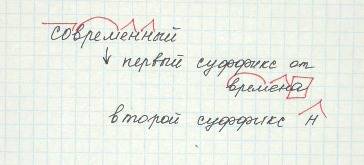 современный
↓ первый суффикс от
времена
второй суффикс н